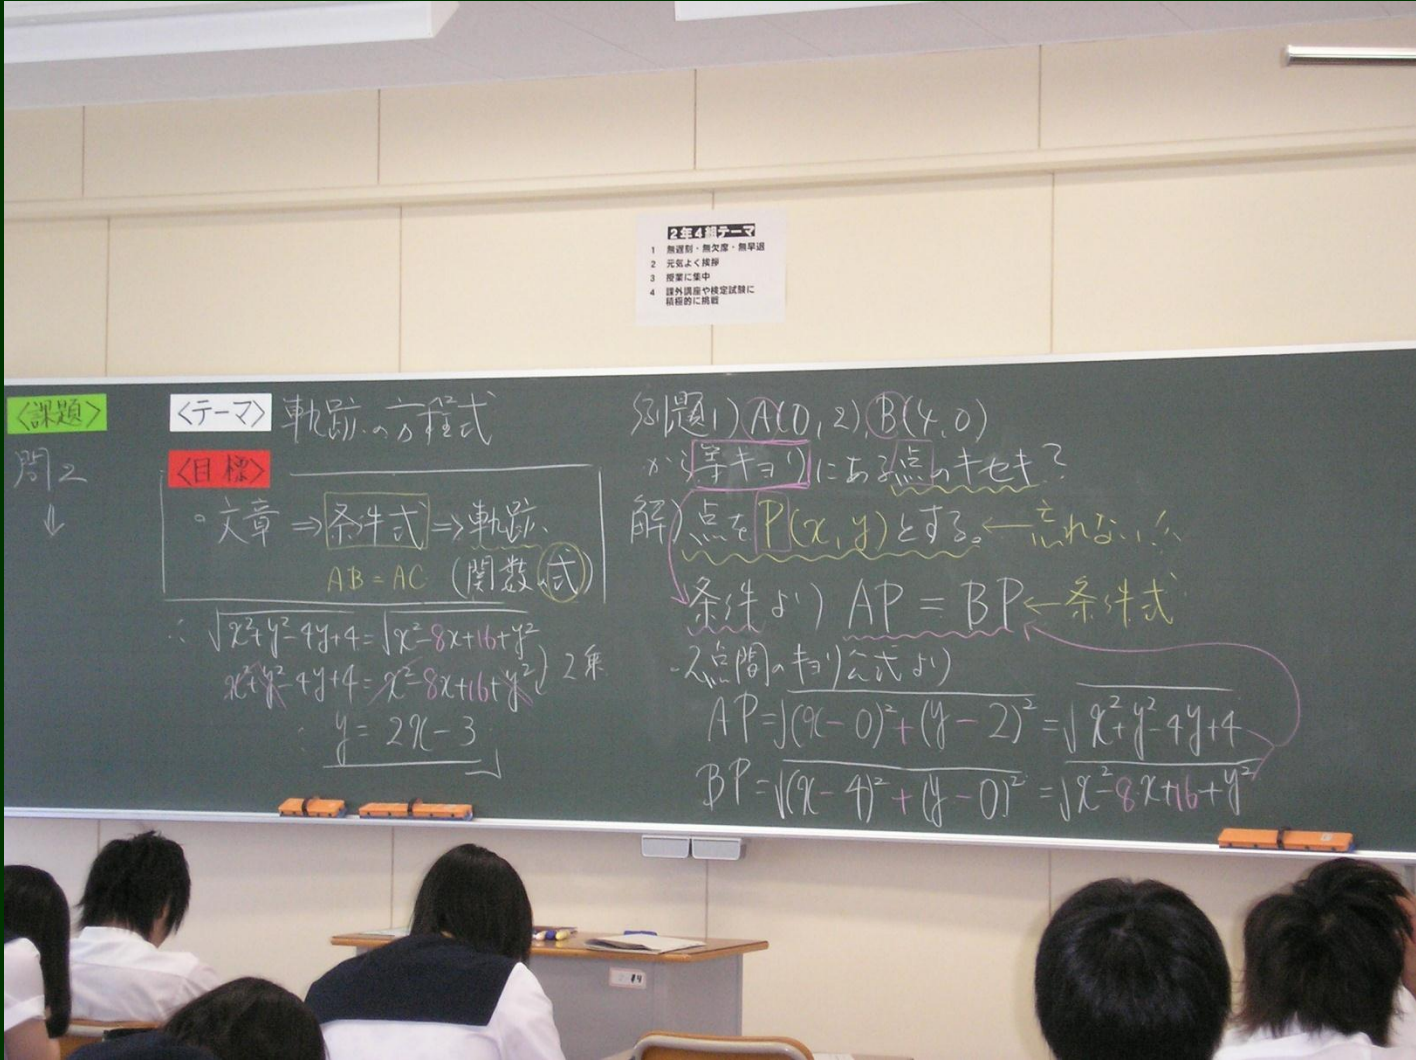 2年4組テーマ
1 無遅刻・無欠席・無早退
2 元気よく挨拶
3 授業に集中
4 課外講座や検定試験に
積極的に挑戦
<課題>
問2
⇓
<テーマ> 軌跡の方程式
<目標>
。文章 ⇒ 条件式 ⇒ 軌跡
AB = AC (関数(式))
∴ √x²+y²-4y+4 = √x²-8x+16+y²
x²+y²-4y+4 = x²-8x+16+y² ) 2乗
∴ y = 2x-3
例題1) A(0,2), B(4,0)
から等キョリにある点のキセキ?
解) 点をP(x,y)とする。 ← 忘れない!!
条件より AP = BP ← 条件式
2点間のキョリ公式より
AP = √(x-0)²+(y-2)² = √x²+y²-4y+4
BP = √(x-4)²+(y-0)² = √x²-8x+16+y²